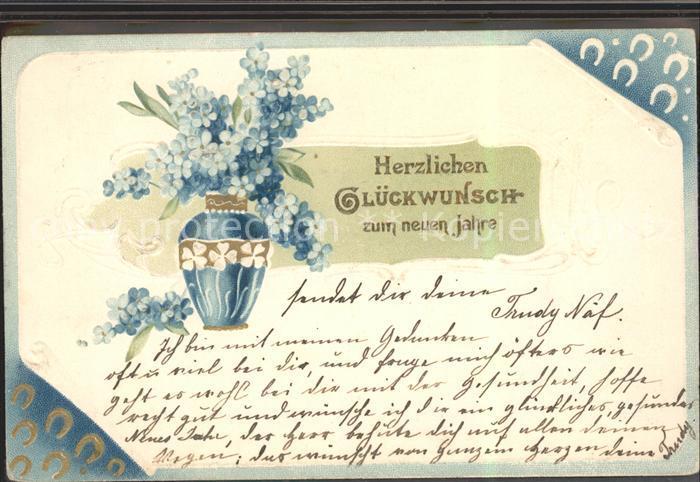 Herzlichen
GLÜCKWUNSCH
zum neuen Jahre
sendet dir deine
Trudy Näf.
Ich bin mit meinen Gedanken
oft u viel bei dir, und frage mich öfters wie
geht es wohl bei dir mit der Gesundheit, hoffe
recht gut und wünsche ich dir ein glückliches, gesundes
Neues Jahr, der Herr behüte dich auf allen deinen
Wegen; das wünscht von ganzem Herzen deine Trudy